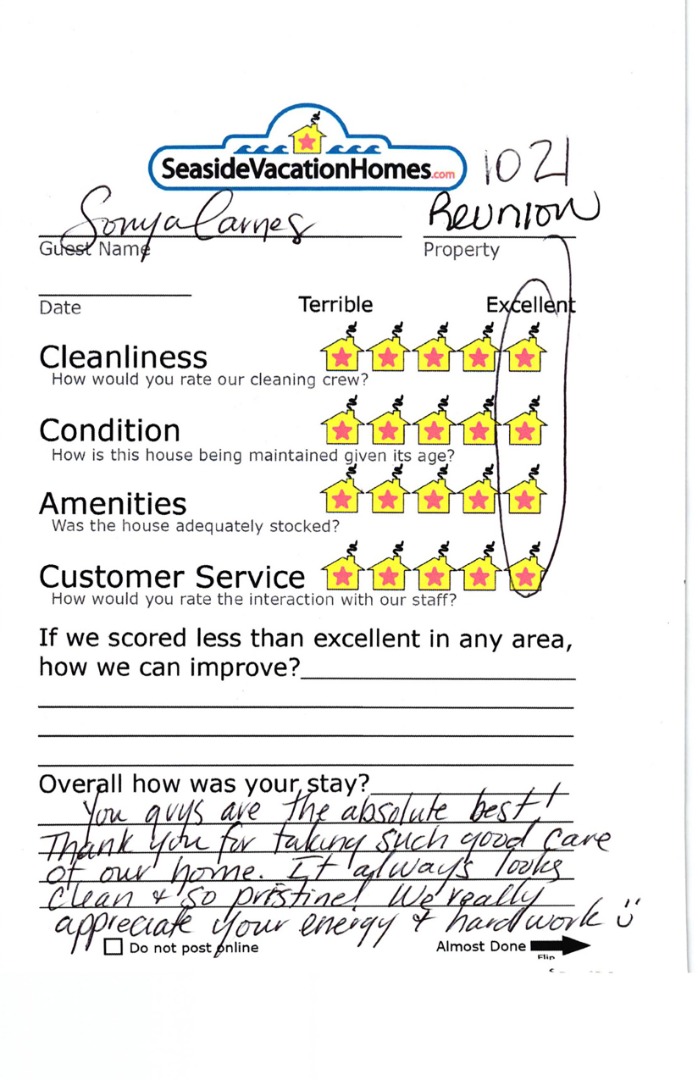 SeasideVacationHomes.com
1021
Sonya Carnes
Reunion
Guest Name
Property
Date
Terrible
Excellent
Cleanliness
How would you rate our cleaning crew?
Condition
How is this house being maintained given its age?
Amenities
Was the house adequately stocked?
Customer Service
How would you rate the interaction with our staff?
If we scored less than excellent in any area,
how we can improve?
Overall how was your stay?
You guys are the absolute best!
Thank you for taking such good care
of our home. It always looks
clean & so pristine! We really
appreciate your energy & hard work
Do not post online
Almost Done
Flip